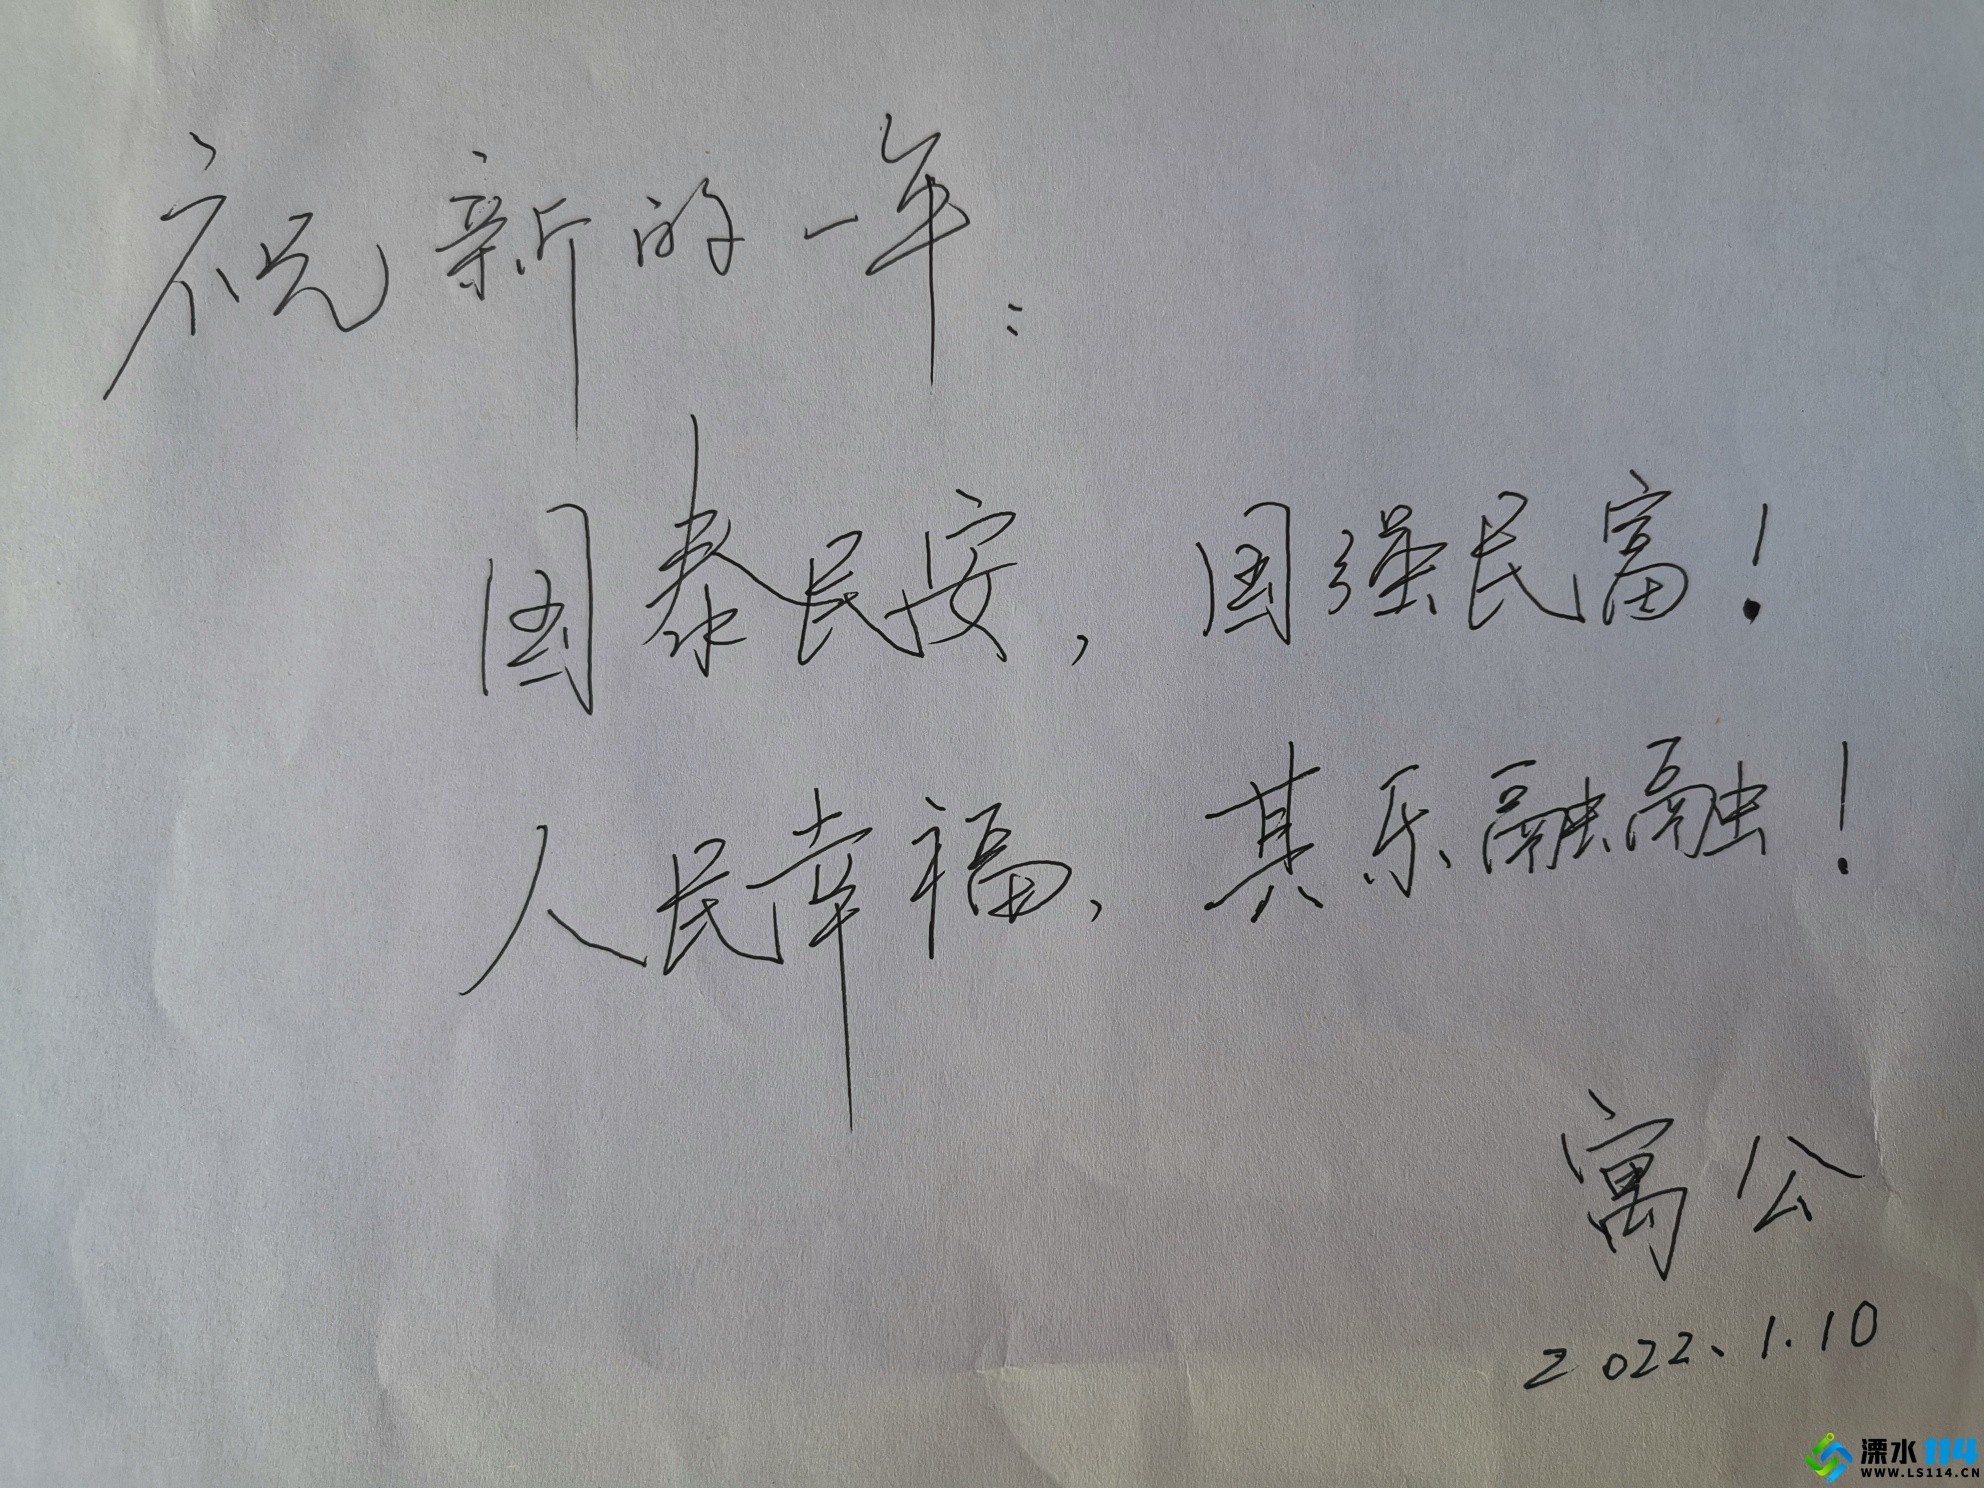 祝新的一年：
国泰民安，国强民富！
人民幸福，其乐融融！
寓公
2022、1.10
溧水114
WWW.LS114.CN